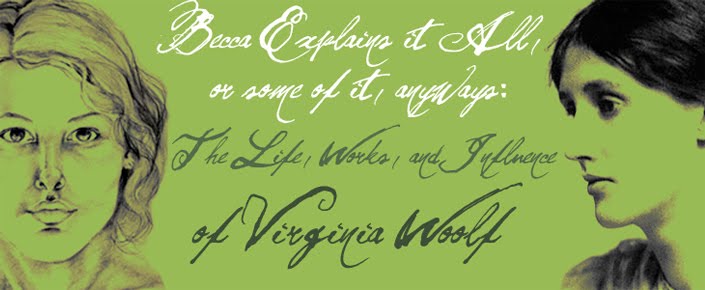 Becca Explains it All,
or some of it, anyWays:
The Life, Works, and Influence
of Virginia Woolf